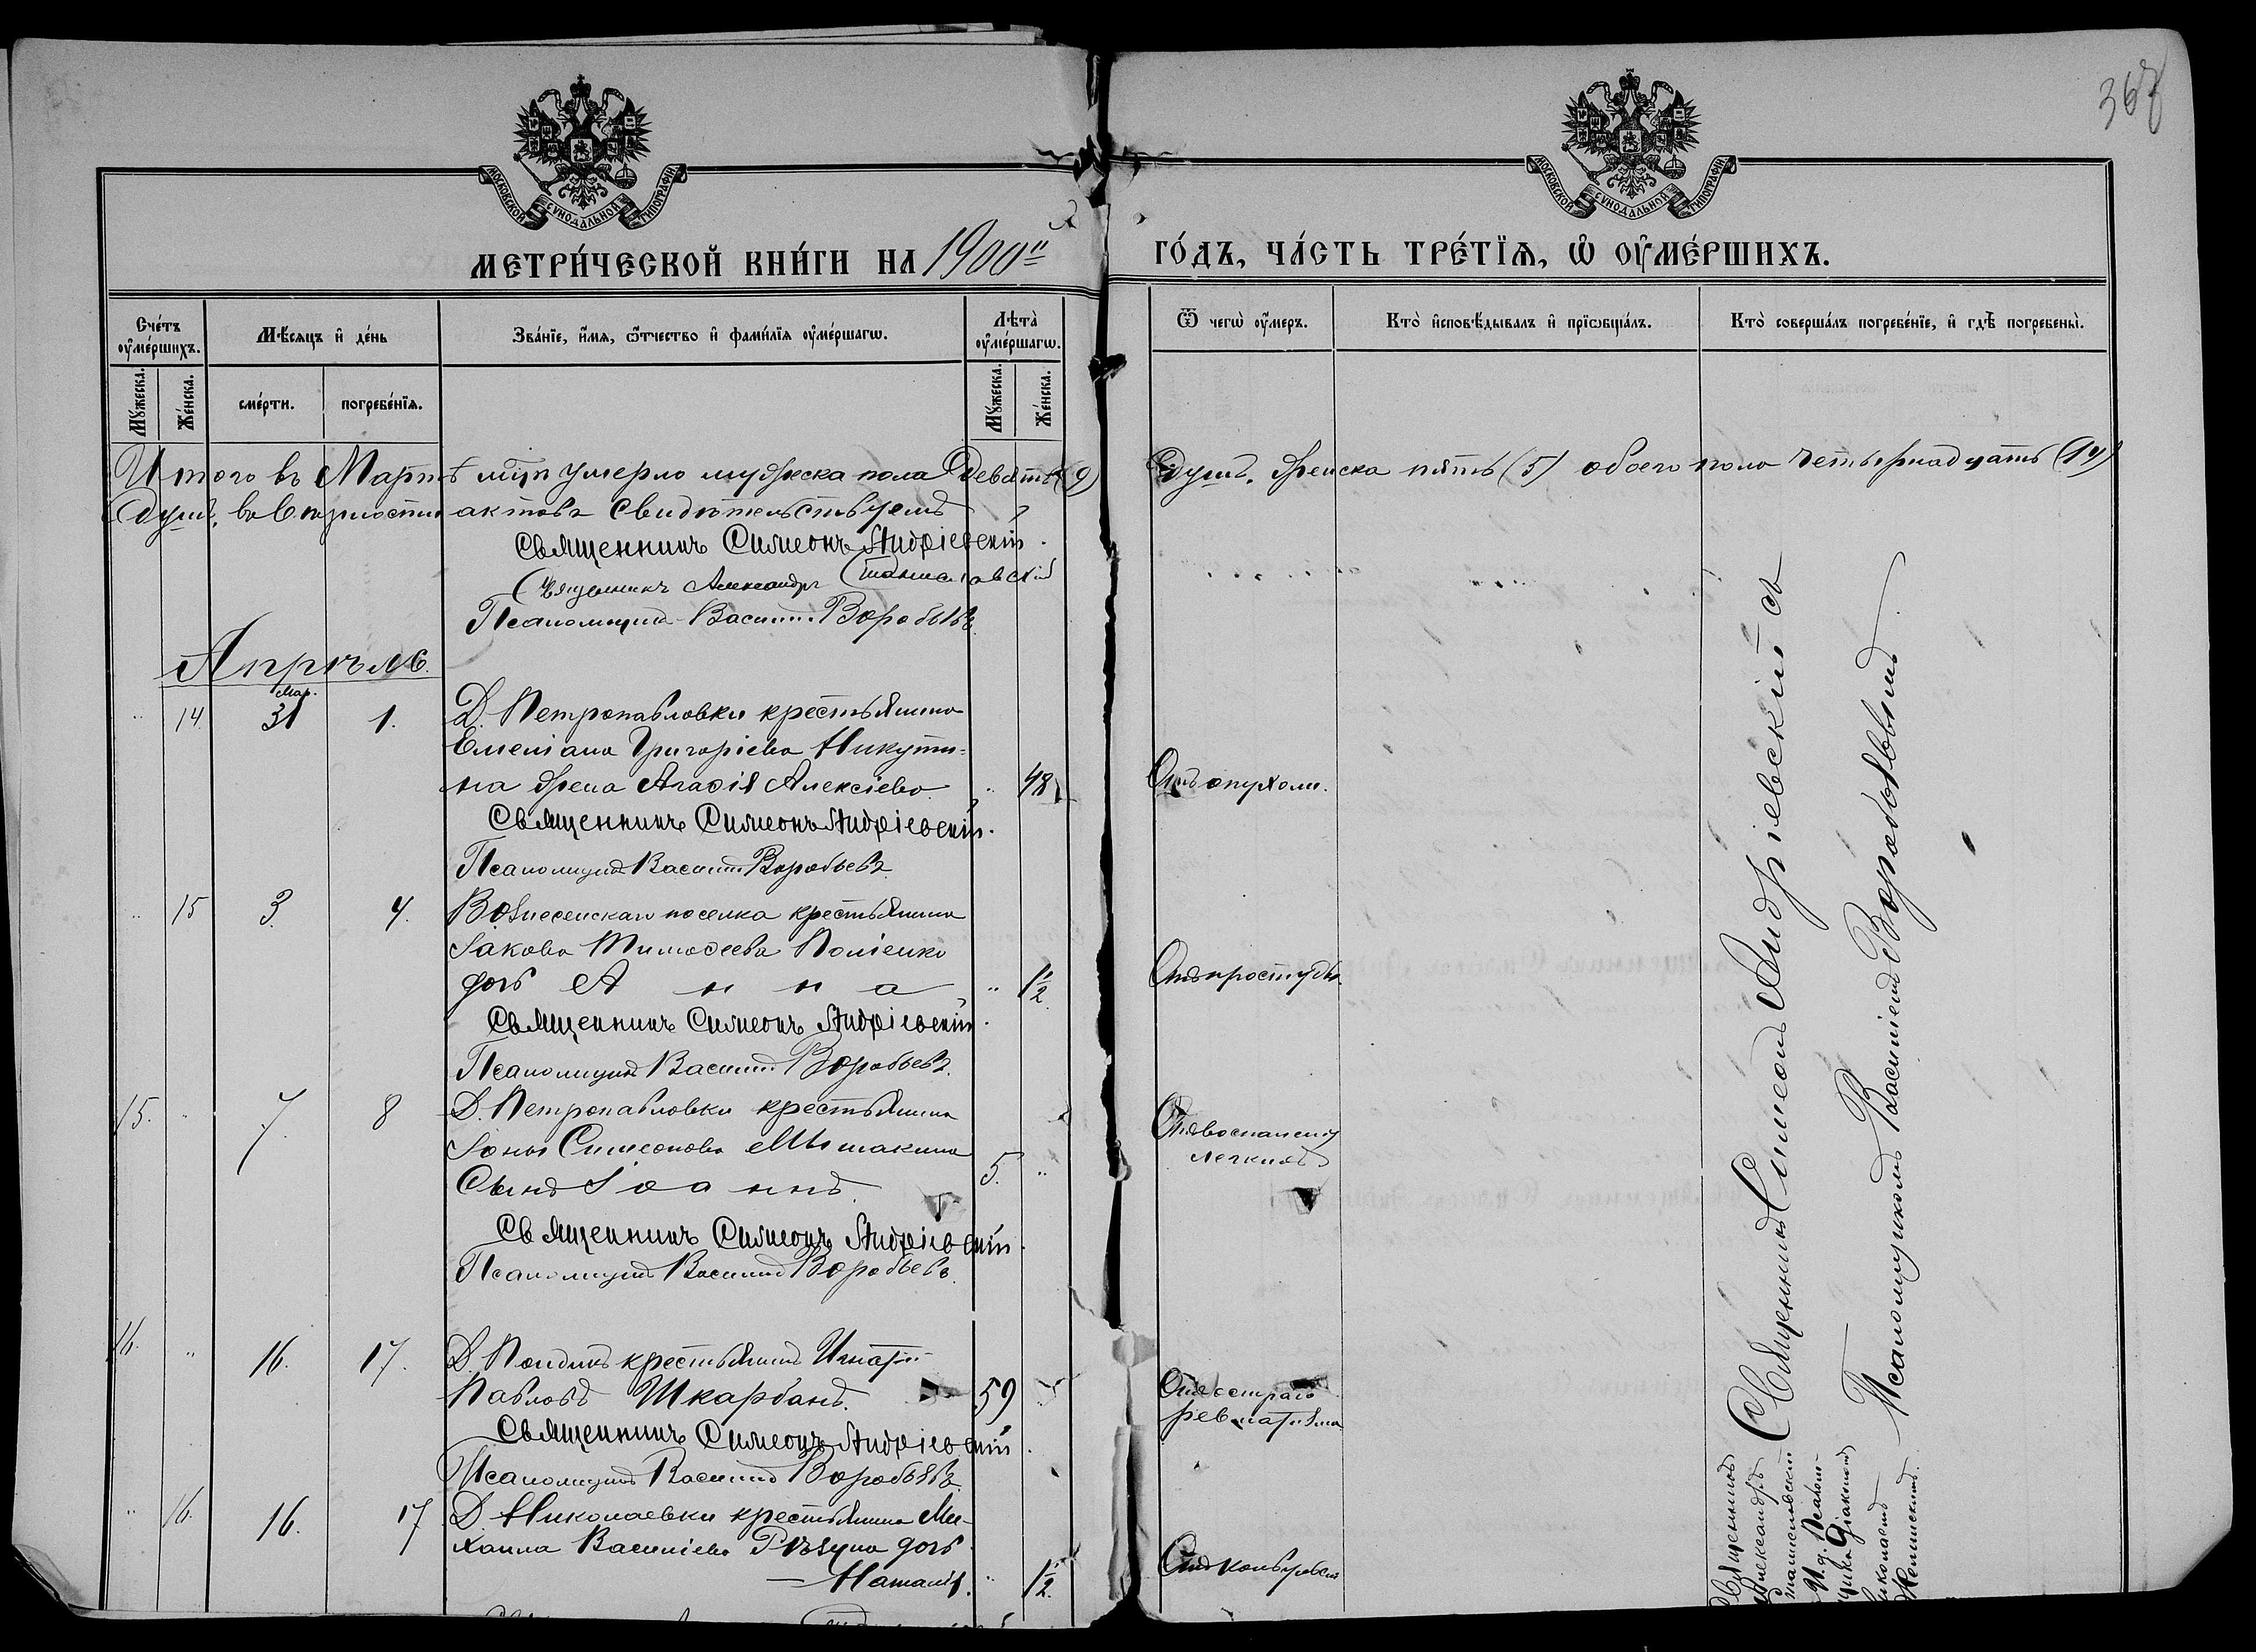 367
МОСКОВСКОЙ СѴНОДАЛЬНОЙ ТИПОГРАФІИ
МОСКОВСКОЙ СѴНОДАЛЬНОЙ ТИПОГРАФІИ
МЕТРИ́ЧЕСКОЙ КНИ́ГИ НА 1900й
ГО́ДЪ, ЧА́СТЬ ТРЕ́ТЇѦ, Ѡ҆ ОУ҆МЕ́РШИХЪ.
Сче́тъ оу҆ме́ршихъ.
Мꙋ́жеска.
Же́нска.
Мѣ́сѧцъ и҆ де́нь
сме́рти.
погребе́нїѧ.
Зва́нїе, и҆́мѧ, ѻ҆́тчество и҆ фами́лїѧ оу҆ме́ршагѡ.
Лѣта̀ оу҆ме́ршагѡ.
Мꙋ́жеска.
Же́нска.
Ѿ чегѡ̀ оу҆́меръ.
Кто̀ и҆сповѣ́дывалъ и҆ прїѡбща́лъ.
Кто̀ соверша́лъ погребе́нїе, и҆ гдѣ̀ погребены̀.
Итого въ Мартѣ мцѣ умерло мужеска пола девять (9) душъ, женска пять (5) обоего пола четырнадцать (14)
душъ, въ актовъ свидѣтельствуемъ
Священникъ Симеонъ Андріевскій.
Священникъ Александръ Станиславскій
Псаломщикъ Василій Воробьевъ.
Апрѣль.
14. Мар. 31 1. Д. Петропавловки крестьянина
Емеліана Григоріева Никути-
на жена Агаѳія Алексіева. 48 Отъ опухоли.
Священникъ Симеонъ Андріевскій.
Псаломщикъ Василій Воробьевъ.
15 3. 4. Вознесенскаго поселка крестьянина
Іакова Тимоѳеева
дочь Анна 1½ Отъ простуды.
Священникъ Симеонъ Андріевскій.
Псаломщикъ Василій Воробьевъ.
15. 7. 8 Д. Петропавловки крестьянина
Іоны Симеонова Мышакина
Сынъ Іоаннъ. 5. Отъ воспаленія легкихъ
Священникъ Симеонъ Андріевскій.
Псаломщикъ Василій Воробьевъ.
16. 16. 17. Д. крестьянинъ Игнатій
Павловъ Шкарбанъ. 59 Отъ остраго ревматизма
Священникъ Симеонъ Андріевскій.
Псаломщикъ Василій Воробьевъ.
16. 16. 17 Д. Николаевки крестьянина Ми-
хаила Василіева Рѣзуна дочь
Наталія. 1½ Отъ конвульсій
Священникъ Симеонъ Андріевскій съ
Псаломщикомъ Василіемъ Воробьевымъ.
Священникъ
Александръ
Станиславскій
И. д. Псалом-
щика Діаконъ